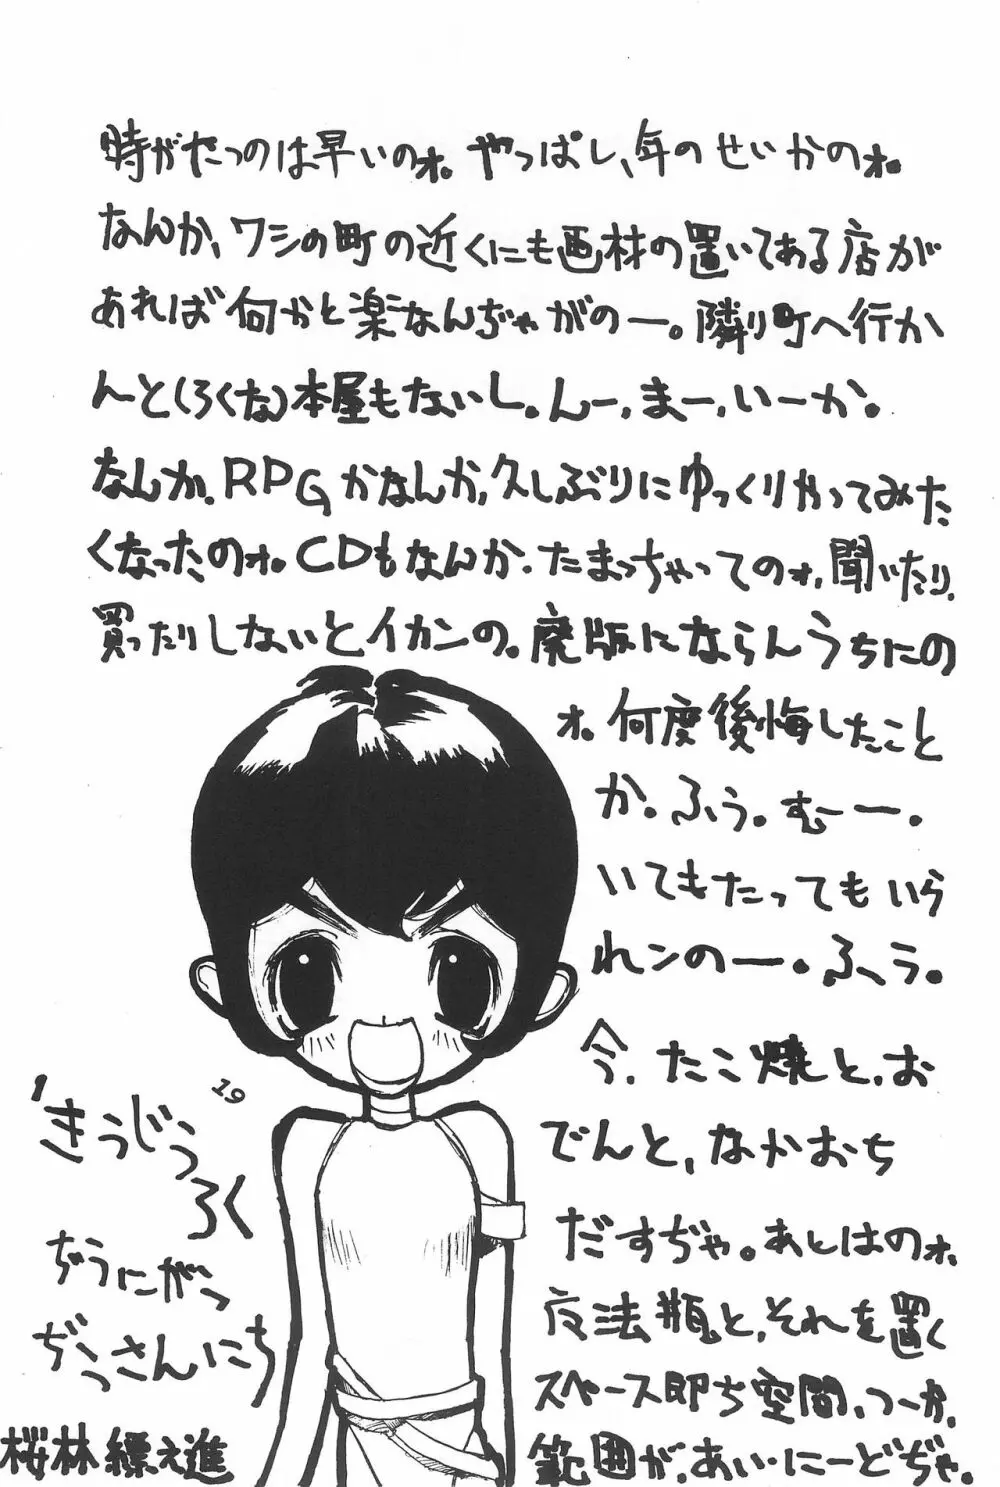 時がたつのは早いのォ。やっぱし、年のせいかのォ。
なんか、ワシの町の近くにも画材の置いてある店が
あれば何かと楽なんぢゃがのー。隣り町へ行か
んと(ろくな)本屋もないし。んー、まー、いーか。
なんか。RPGかなんか、久しぶりにゆっくりやってみた
くなったのォ。CDもなんか、たまっちゃってのォ、聞いたり、
買ったりしないとイカンの。廃版にならんうちにの
ォ。何度後悔したこと
か。ふぅ。むー。
いてもたってもいら
れンのー。ふぅ。
今、たこ焼と、お
でんと、なかおち
だすぢゃ。あとはのォ、
魔法瓶と、それを置く
スペース即ち空間、つーか、
範囲が、あい・にーどぢゃ。
19
'きうじぅ
ろく
ぢうにがつ
ぢぅさんにち
桜林 進